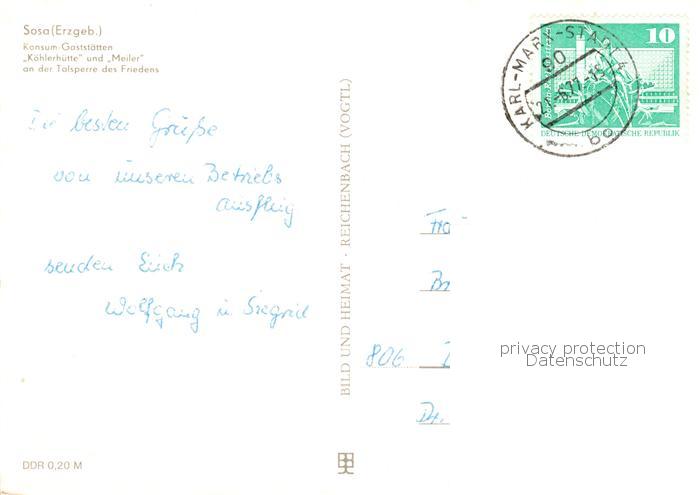 Sosa (Erzgeb.)
Konsum-Gaststätten
„Köhlerhütte" und „Meiler"
an der Talsperre des Friedens
Die besten Grüße
von unseren Betriebs
ausflug
senden Euch
Wolfgang u. Siegrid
DDR 0,20 M
BILD UND HEIMAT · REICHENBACH (VOGTL)
KARL-MARX-STADT
90
bg
10
DEUTSCHE DEMOKRATISCHE REPUBLIK
806
privacy protection
Datenschutz